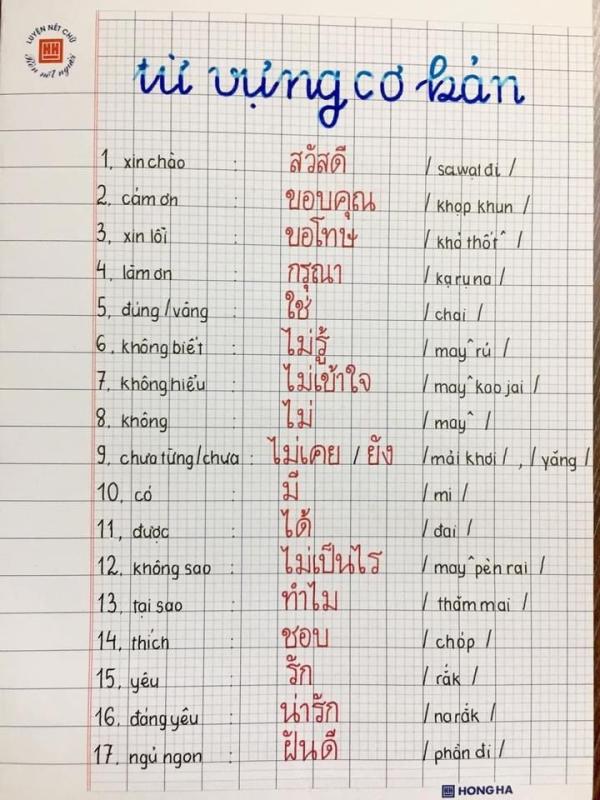 LUYỆN NÉT CHỮ
Rèn nết người
từ vựng cơ bản
1, xin chào : สวัสดี / sa.wạt đi /
2, cảm ơn : ขอบคุณ / khọp khun /
3, xin lỗi : ขอโทษ / khỏ thốt^ /
4, làm ơn : กรุณา / kạ ru na /
5, đúng / vâng : ใช่ / chai /
6, không biết : ไม่รู้ / may^ rú /
7, không hiểu : ไม่เข้าใจ / may^ kao jai /
8, không : ไม่ / may^ /
9, chưa từng/chưa : ไม่เคย / ยัง / mải khơi / , / yăng /
10, có : มี / mi /
11, được : ได้ / đai /
12, không sao : ไม่เป็นไร / may^ pèn rai /
13, tại sao : ทำไม / thăm mai /
14, thích : ชอบ / chóp /
15, yêu : รัก / rắk /
16, đáng yêu : น่ารัก / na rắk /
17, ngủ ngon : ฝันดี / phẳn đi /
HONG HA